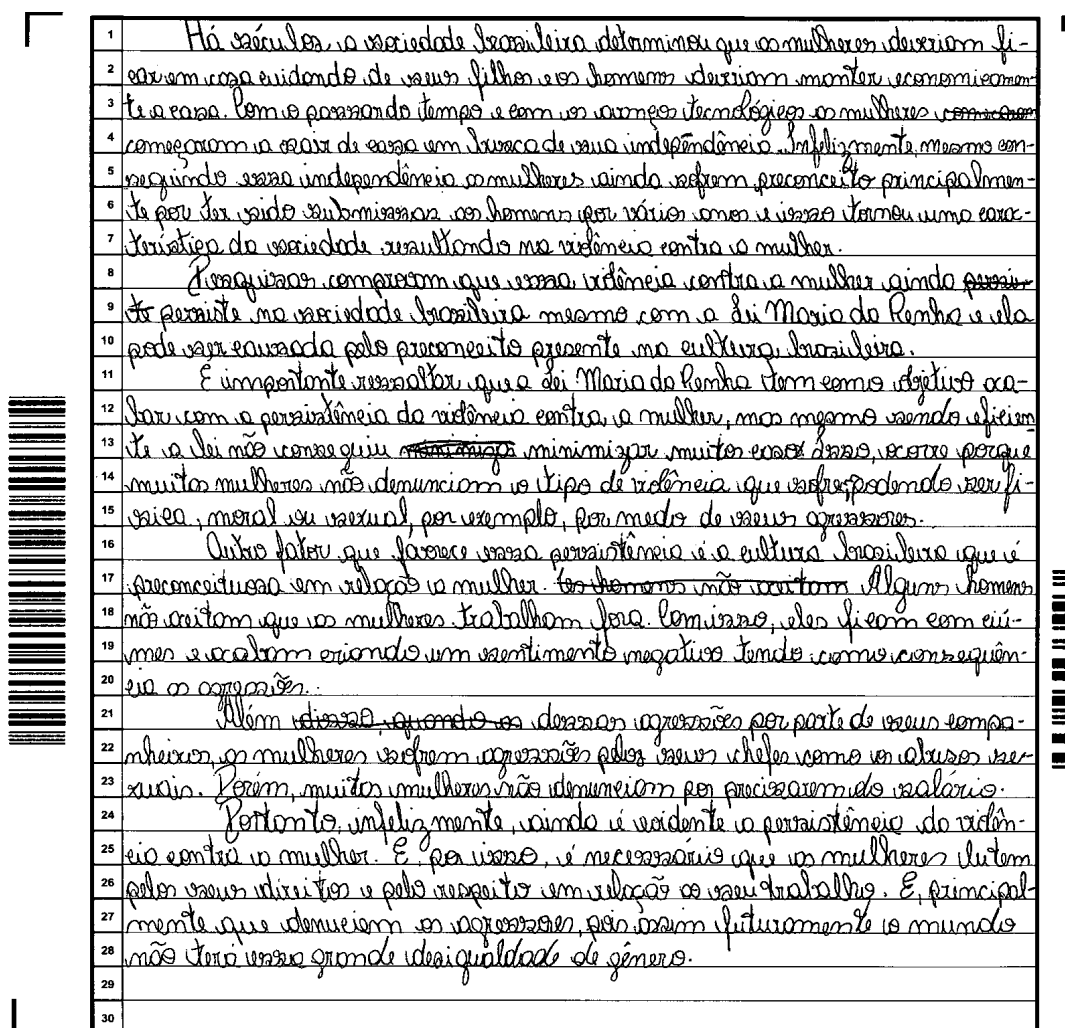 1 Há séculos, a sociedade brasileira determinou que as mulheres deveriam fi-
2 car em casa cuidando de seus filhos e os homens deveriam manter economicamen-
3 te a casa. Com o passar do tempo e com os avanços tecnológicos as mulheres
4 começaram a sair de casa em busca de sua independência. Infelizmente, mesmo con-
5 seguindo essa independência as mulheres ainda sofrem preconceito principalmen-
6 te por ter sido submissas aos homens por vários anos e isso tornou uma carac-
7 terística da sociedade resultando na violência contra a mulher.
8 Pesquisas comprovam que essa violência contra a mulher ainda persis-
9 te persiste na sociedade brasileira mesmo com a Lei Maria da Penha e ela
10 pode ser causada pelo preconceito presente na cultura brasileira.
11 É importante ressaltar que a Lei Maria da Penha tem como objetivo aca-
12 bar com a persistência da violência contra a mulher, mas mesmo sendo eficien
13 te a lei não conseguiu minimizar muitos casos. Isso, ocorre porque
14 muitas mulheres não denunciam o tipo de violência que sofre, podendo ser fí-
15 sica, moral ou sexual, por exemplo, por medo de seus agressores.
16 Outro fator que favorece essa persistência é a cultura brasileira que é
17 preconceituosa em relação a mulher. os homens não aceitam Alguns homens
18 não aceitam que as mulheres trabalham fora. Com isso, eles ficam com ciú-
19 mes e acabam criando um sentimento negativo tendo como consequên-
20 cia as agressões.
21 Além disso, quando os dessas agressões por parte de seus compa-
22 nheiros, as mulheres sofrem agressões pelos seus chefes como os abusos se-
23 xuais. Porém, muitas mulheres não denunciam por precisarem do salário.
24 Portanto, infelizmente, ainda é evidente a persistência da violên-
25 cia contra a mulher. E, por isso, é necessário que as mulheres lutem
26 pelos seus direitos e pelo respeito em relação ao seu trabalho. E, principal-
27 mente que denuciem os agressores, pois assim futuramente o mundo
28 não terá essa grande desigualdade de gênero.
29
30